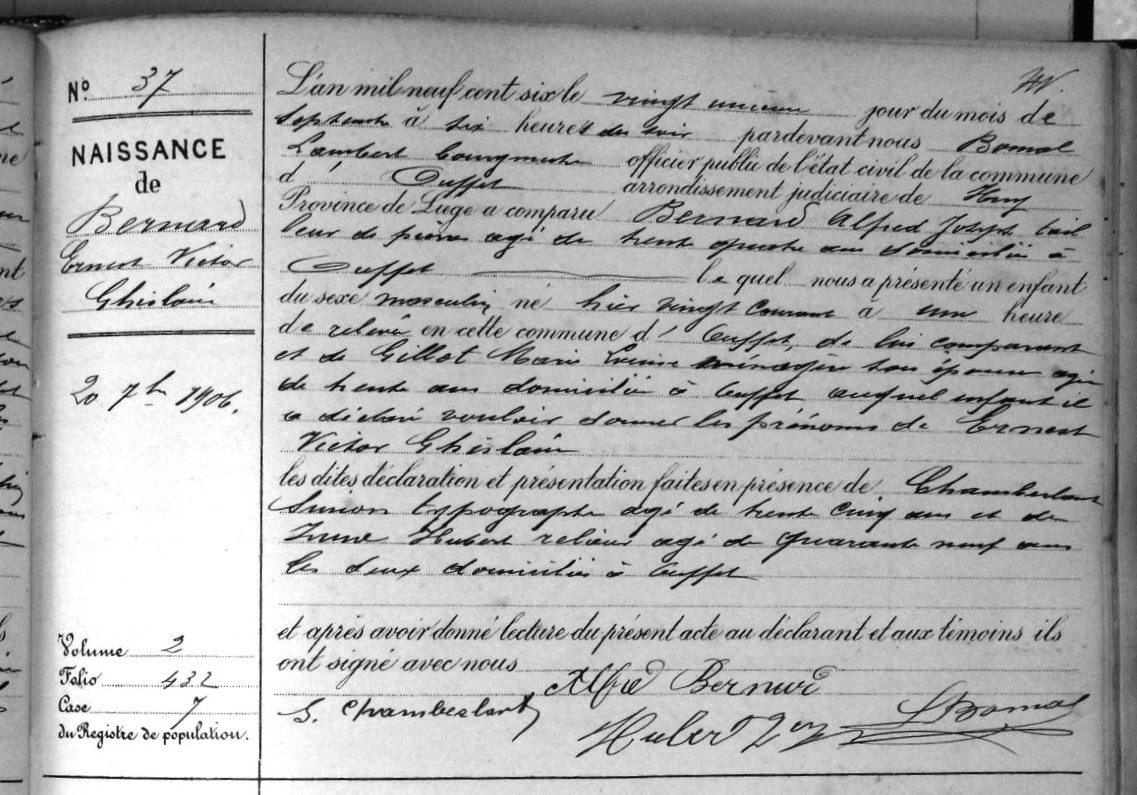 Nº 37
NAISSANCE
de
Bernard
Ernest Victor
Ghislain
20 7b 1906.
Volume 2
Folio 432
Case 7
du Registre de population.
L'an mil neuf cent six le vingt unième jour du mois de
septembre à six heures du soir pardevant nous Bomal
Lambert officier public de l'état civil de la commune
d' Ouffet arrondissement judiciaire de Huy
Province de Liège a comparu Bernard Alfred Joseph tail
leur de pierres agé de trente quatre ans domicilié à
Ouffet le quel nous a présenté un enfant
du sexe masculin né hier vingt courant à une heure
de relevée en cette commune d' Ouffet, de lui comparant
et de Gillot Marie Louise ménagère son épouse agée
de trente ans domiciliée à Ouffet auquel enfant il
a déclaré vouloir donner les prénoms de Ernest
Victor Ghislain
les dites déclaration et présentation faites en présence de Chamberlant
Simon typographe agé de trente cinq ans et de
Hubert relieur agé de quarante neuf ans
les deux domiciliés à Ouffet
et après avoir donné lecture du présent acte au déclarant et aux témoins ils
ont signé avec nous
Alfred Bernard
S. Chamberlant
Hubert
LBomal